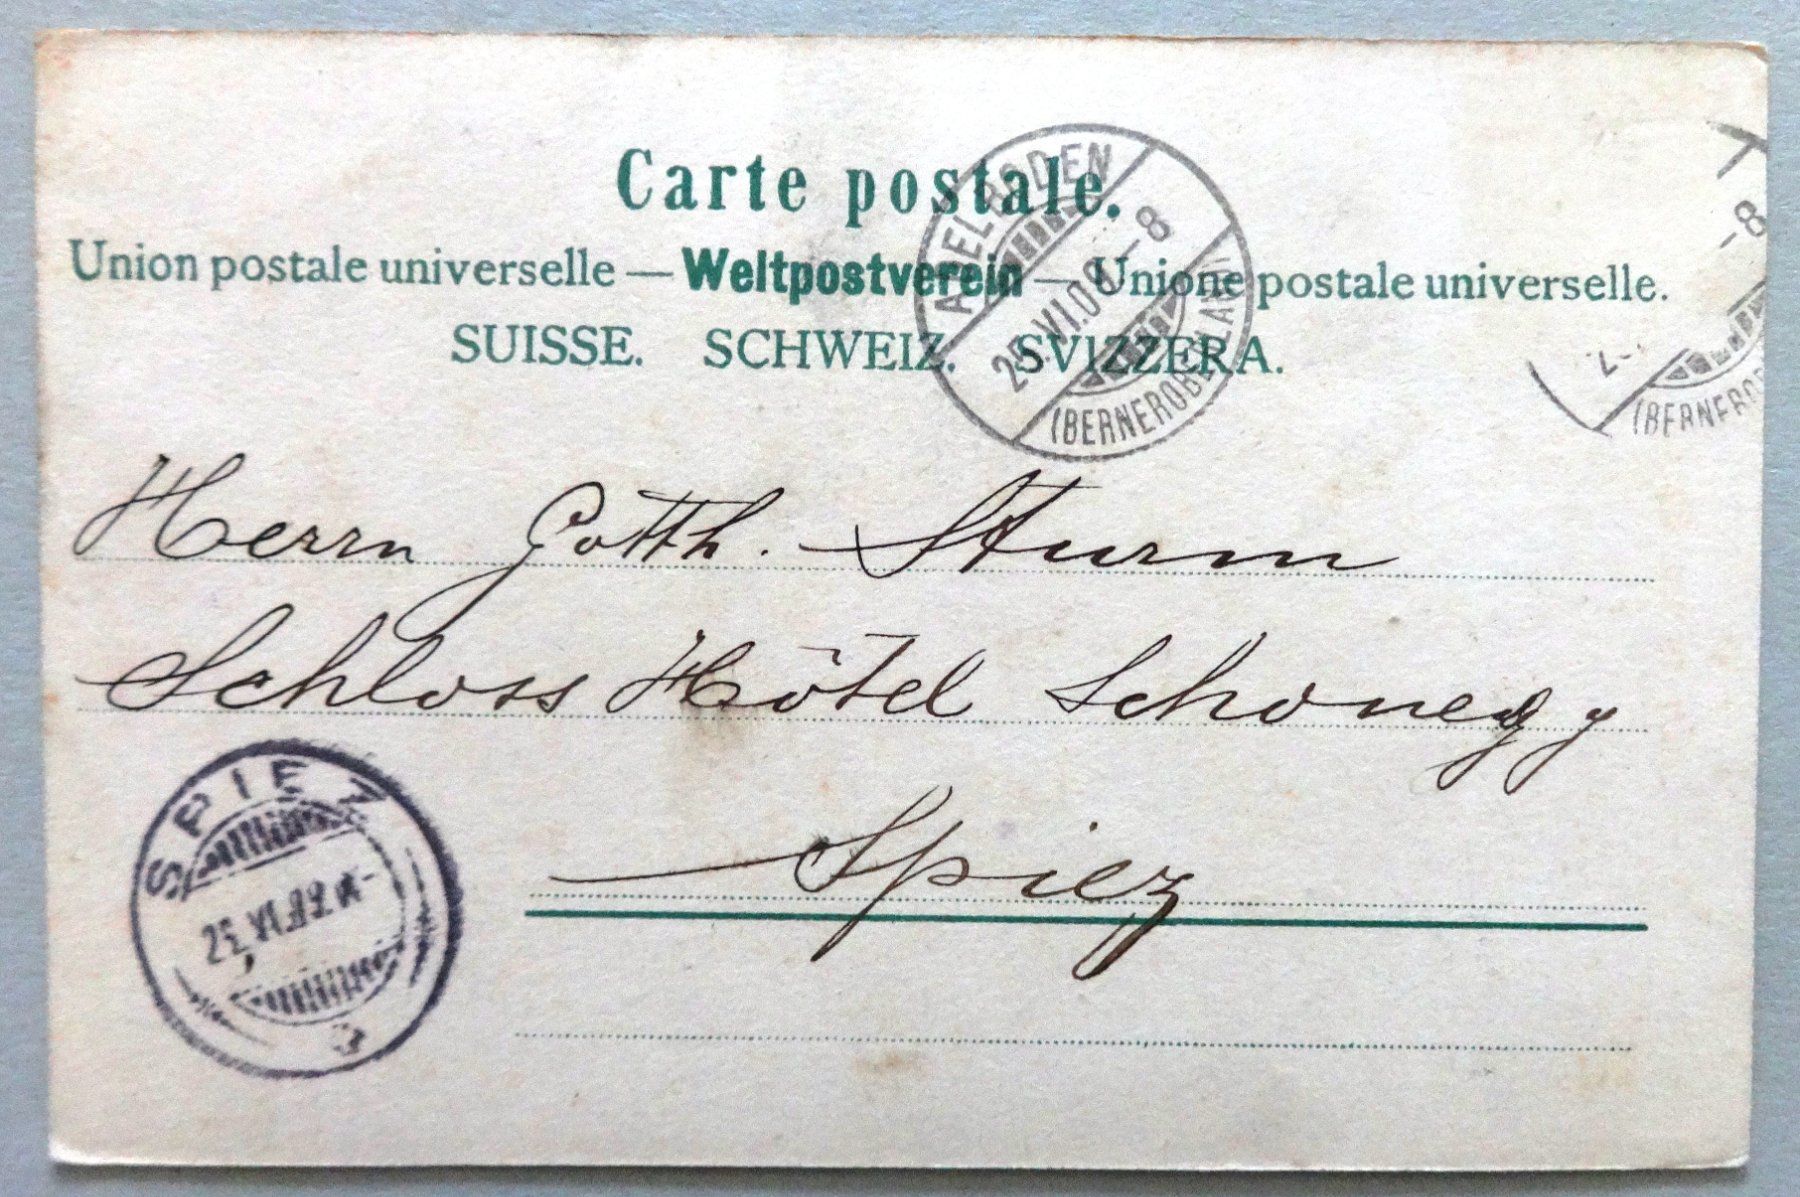 Carte postale.
Union postale universelle — Weltpostverein — Unione postale universelle.
SUISSE. SCHWEIZ. SVIZZERA.
ADELBODEN
-8
(BERNEROBERLAND)
-8
(BERNERO
Herrn Gotth. Sturm
Schloss Hôtel Schonegg
Spiez
SPIEZ